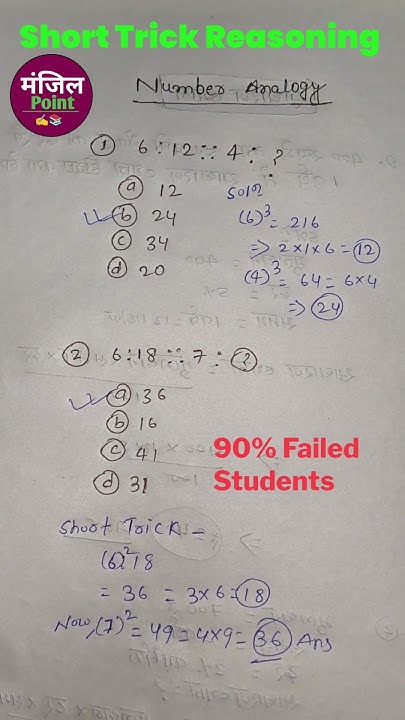 Short Trick Reasoning
मंजिल
Point
Number Analogy
① 6 : 12 :: 4 : ?
ⓐ 12
ⓑ 24
ⓒ 34
ⓓ 20
Soln
(6)³ = 216
⇒ 2×1×6 = 12
(4)³ = 64 = 6×4
⇒ 24
② 6 : 18 :: 7 : ?
ⓐ 36
ⓑ 16
ⓒ 41
ⓓ 31
90% Failed
Students
Short Trick –
(6)² 18
= 36 = 3×6 = 18
Now, (7)² = 49 = 4×9 = 36 Ans